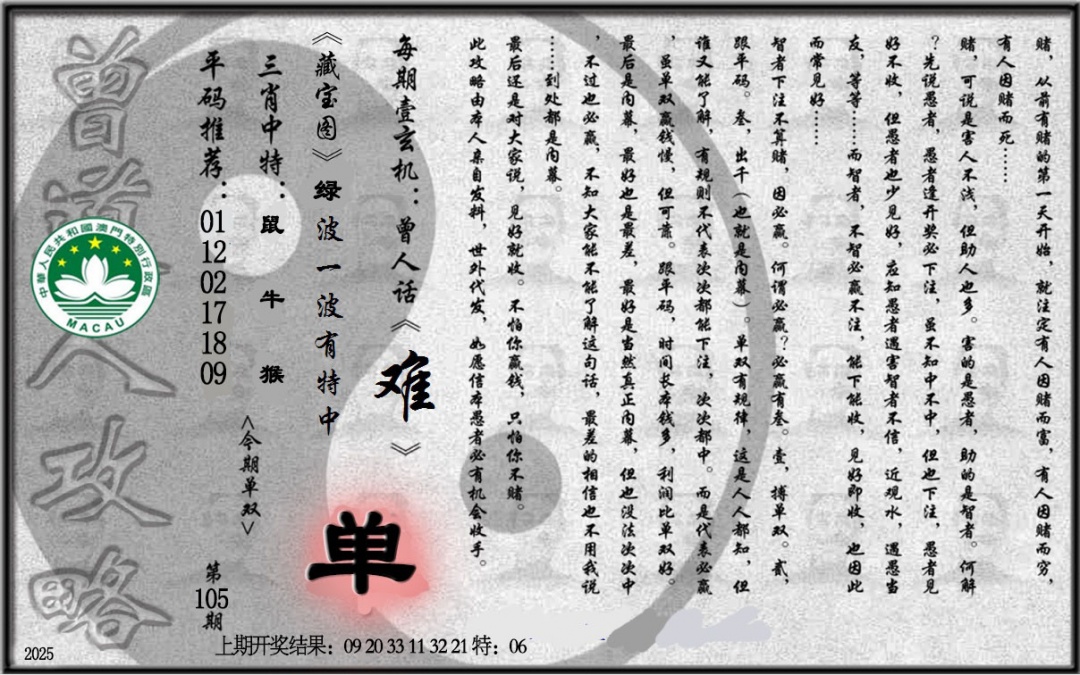 赌，从前有赌的第一天开始，就注定有人因赌而富，有人因赌而穷，
有人因赌而死……
赌，可说是害人不浅，但助人也多。害的是愚者，助的是智者。何解
？先说愚者，愚者逢开奖必下注，虽不知中不中，但也下注，愚者见
好不收，但愚者也少见好，应知愚者遇害智者不信，近观水，遇愚当
友，等等……而智者，不智必赢不注，能下能收，见好即收，也因此
而常见好……
智者下注不算赌，因必赢。何谓必赢？必赢有叁。壹，搏单双。贰，
跟平码。叁，出千（也就是内幕）。单双有规律，这是人人都知，但
谁又能了解，有规则不代表次次都能下注，次次都中。而是代表必赢
，虽单双赢钱慢，但可靠。跟平码，时间长本钱多，利润比单双好。
最后是内幕，最好也是最差，最好是当然真正内幕，但也没法次次中
，不过也必赢，不知大家能不能了解这句话，最差的相信也不用我说
……到处都是内幕。
最后还是对大家说，见好就收。不怕你赢钱，只怕你不赌。
此攻略由本人亲自发料，世外代发，如愿信本愚者必有机会收手。
每期壹玄机：曾人话《难》
《藏宝图》绿波一波有特中
三肖中特：鼠 牛 猴
平码推荐：01 12 02 17 18 09
<今期单双>
单
第105期
曾道人攻略
中華人民共和國澳門特別行政區
MACAU
上期开奖结果：09 20 33 11 32 21 特：06
2025